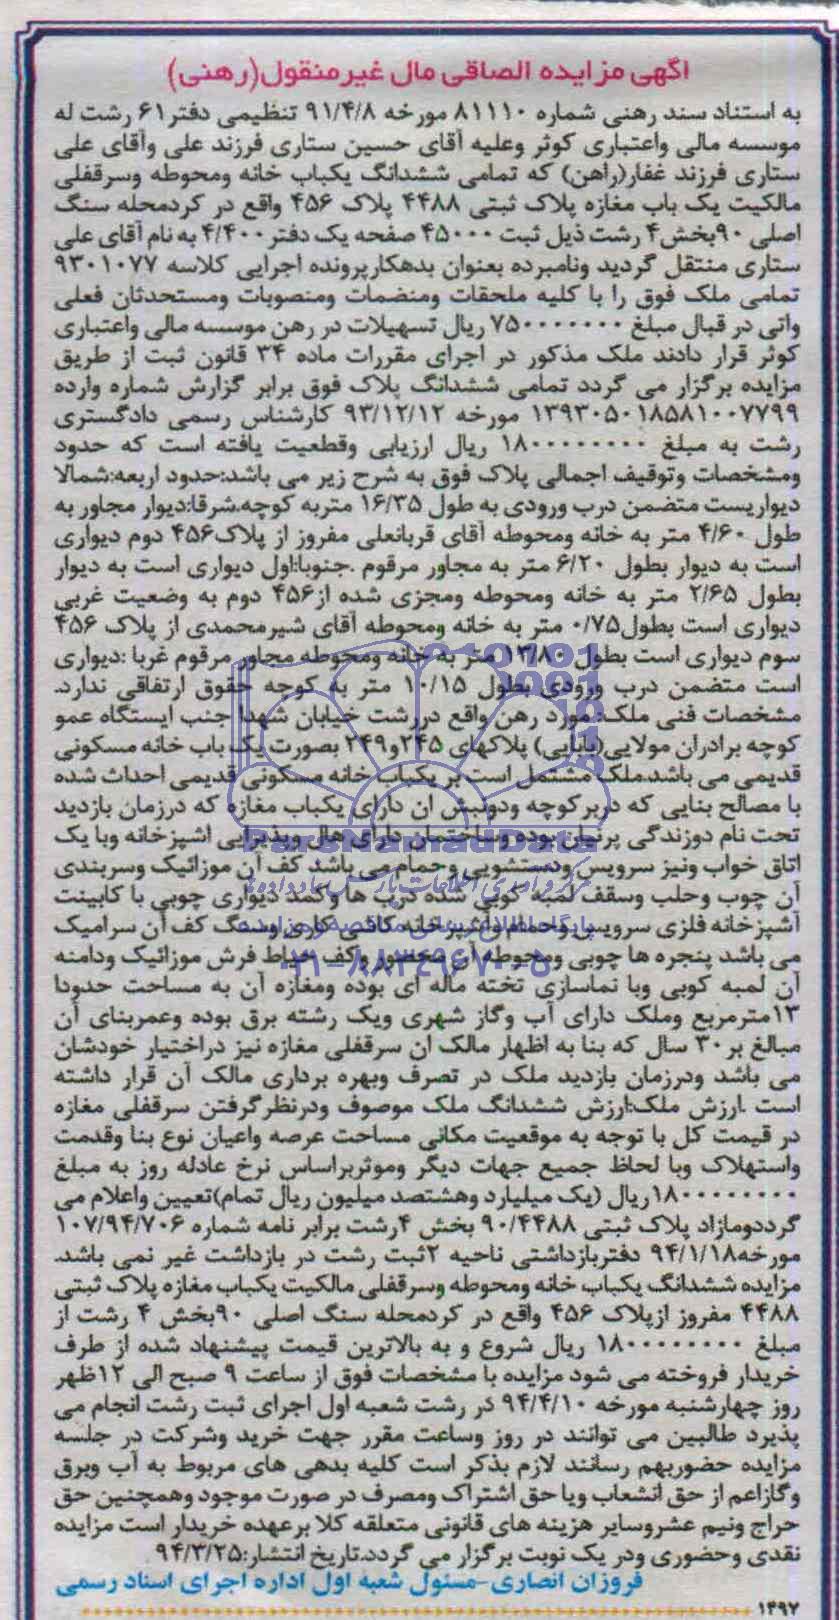 آگهی مزایده الصاقی مال غیرمنقول(رهنی)
به استناد سند رهنی شماره ۸۱۱۱۰ مورخه ۹۱/۴/۸ تنظیمی دفتر۶۱ رشت له
موسسه مالی واعتباری کوثر وعلیه آقای حسین ستاری فرزند علی وآقای علی
ستاری فرزند غفار(راهن) که تمامی ششدانگ یکباب خانه ومحوطه وسرقفلی
مالکیت یک باب مغازه پلاک ثبتی ۴۴۸۸ پلاک ۴۵۶ واقع در کردمحله سنگ
اصلی ۹۰بخش۴ رشت ذیل ثبت ۴۵۰۰۰ صفحه یک دفتر ۴/۴۰۰ به نام آقای علی
ستاری منتقل گردید ونامبرده بعنوان بدهکارپرونده اجرایی کلاسه ۹۳۰۱۰۷۷
تمامی ملک فوق را با کلیه ملحقات ومنضمات ومنصوبات ومستحدثان فعلی
واتی در قبال مبلغ ۷۵۰۰۰۰۰۰۰ ریال تسهیلات در رهن موسسه مالی واعتباری
کوثر قرار دادند ملک مذکور در اجرای مقررات ماده ۳۴ قانون ثبت از طریق
مزایده برگزار می گردد تمامی ششدانگ پلاک فوق برابر گزارش شماره وارده
۱۳۹۳۰۵۰۱۸۵۸۱۰۰۷۷۹۹ مورخه ۹۳/۱۲/۱۲ کارشناس رسمی دادگستری
رشت به مبلغ ۱۸۰۰۰۰۰۰۰۰ ریال ارزیابی وقطعیت یافته است که حدود
ومشخصات وتوقیف اجمالی پلاک فوق به شرح زیر می باشد:حدود اربعه:شمالا
دیواریست متضمن درب ورودی به طول ۱۶/۳۵ متربه کوچه.شرقا:دیوار مجاور به
طول ۴/۶۰ متر به خانه ومحوطه آقای قربانعلی مفروز از پلاک۴۵۶ دوم دیواری
است به دیوار بطول ۶/۲۰ متر به مجاور مرقوم .جنوبا:اول دیواری است به دیوار
بطول ۲/۶۵ متر به خانه ومحوطه ومجزی شده از۴۵۶ دوم به وضعیت غربی
دیواری است بطول۰/۷۵ متر به خانه ومحوطه آقای شیرمحمدی از پلاک ۴۵۶
سوم دیواری است بطول ۱۳/۸۰ متر به خانه ومحوطه مجاور مرقوم غربا :دیواری
است متضمن درب ورودی بطول ۱۰/۱۵ متر به کوچه حقوق ارتفاقی ندارد.
مشخصات فنی ملک: مورد رهن واقع دررشت خیابان شهدا جنب ایستگاه عمو
کوچه برادران مولایی(بابایی) پلاکهای ۲۴۵و۲۴۹ بصورت یک باب خانه مسکونی
قدیمی می باشد.ملک مشتمل است بر یکباب خانه مسکونی قدیمی احداث شده
با مصالح بنایی که دربرکوچه ودونبش ان دارای یکباب مغازه که درزمان بازدید
تحت نام دوزندگی پرنیان بوده وساختمان دارای هال وپذیرایی اشپزخانه وبا یک
اتاق خواب ونیز سرویس ودستشویی وحمام می باشد کف آن موزائیک وسربندی
آن چوب وحلب وسقف لمبه کوبی شده درب ها وکمد دیواری چوبی با کابینت
آشپزخانه فلزی سرویس وحمام وآشپزخانه کاشی کاری وسنگ کف آن سرامیک
می باشد پنجره ها چوبی ومحوطه آن محصور وکف حیاط فرش موزائیک ودامنه
آن لمبه کوبی وبا نماسازی تخته ماله ای بوده ومغازه آن به مساحت حدودا
۱۳مترمربع وملک دارای آب وگاز شهری ویک رشته برق بوده وعمربنای آن
مبالغ بر۳۰ سال که بنا به اظهار مالک ان سرقفلی مغازه نیز دراختیار خودشان
می باشد ودرزمان بازدید ملک در تصرف وبهره برداری مالک آن قرار داشته
است .ارزش ملک:ارزش ششدانگ ملک موصوف ودرنظرگرفتن سرقفلی مغازه
در قیمت کل با توجه به موقعیت مکانی مساحت عرصه واعیان نوع بنا وقدمت
واستهلاک وبا لحاظ جمیع جهات دیگر وموثربراساس نرخ عادله روز به مبلغ
۱۸۰۰۰۰۰۰۰۰ریال (یک میلیارد وهشتصد میلیون ریال تمام)تعیین واعلام می
گرددومازاد پلاک ثبتی ۹۰/۴۴۸۸ بخش ۴رشت برابر نامه شماره ۱۰۷/۹۴/۷۰۶
مورخه۹۴/۱/۱۸ دفتربازداشتی ناحیه ۲ثبت رشت در بازداشت غیر نمی باشد.
مزایده ششدانگ یکباب خانه ومحوطه وسرقفلی مالکیت یکباب مغازه پلاک ثبتی
۴۴۸۸ مفروز ازپلاک ۴۵۶ واقع در کردمحله سنگ اصلی ۹۰بخش ۴ رشت از
مبلغ ۱۸۰۰۰۰۰۰۰۰ ریال شروع و به بالاترین قیمت پیشنهاد شده از طرف
خریدار فروخته می شود مزایده با مشخصات فوق از ساعت ۹ صبح الی ۱۲ظهر
روز چهارشنبه مورخه ۹۴/۴/۱۰ در رشت شعبه اول اجرای ثبت رشت انجام می
پذیرد طالبین می توانند در روز وساعت مقرر جهت خرید وشرکت در جلسه
مزایده حضوربهم رسانند لازم بذکر است کلیه بدهی های مربوط به آب وبرق
وگازاعم از حق انشعاب ویا حق اشتراک ومصرف در صورت موجود وهمچنین حق
حراج ونیم عشروسایر هزینه های قانونی متعلقه کلا برعهده خریدار است مزایده
نقدی وحضوری ودر یک نوبت برگزار می گردد.تاریخ انتشار:۹۴/۳/۲۵
فروزان انصاری-مسئول شعبه اول اداره اجرای اسناد رسمی
۱۴۹۷
ParsNamadData
مرکز فرآوری اطلاعات پارس نماد داده ها
پایگاه اطلاع رسانی مناقصه و مزایده
۰۲۱-۸۸۳۴۹۶۷۰-۵